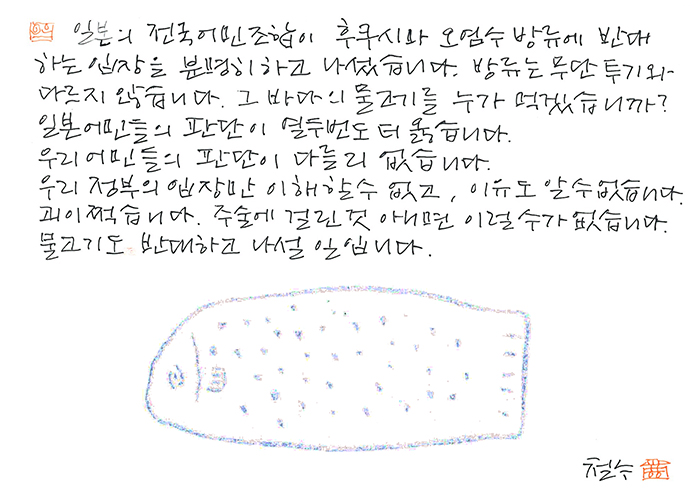 일본의 전국어민조합이 후쿠시마 오염수 방류에 반대
하는 입장을 분명히하고 나섰습니다. 방류는 무단투기와
다르지 않습니다. 그 바다의 물고기를 누가 먹겠습니까?
일본어민들의 판단이 열두번도 더 옳습니다.
우리어민들의 판단이 다를리 없습니다.
우리 정부의 입장만 이해할수 없고, 이유도 알수없습니다.
괴이쩍습니다. 주술에 걸린것 아니면 이럴수가 없습니다.
물고기도 반대하고 나설 일입니다.
철수